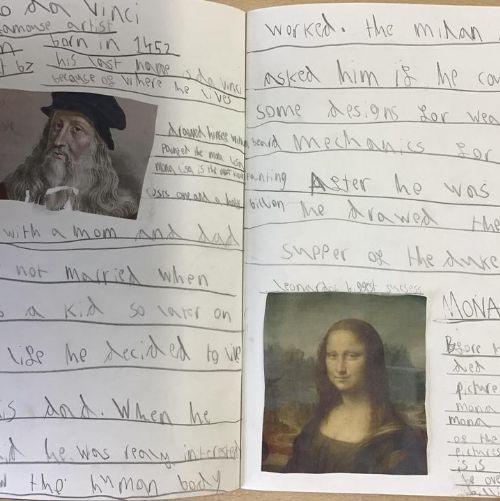 o da Vinci
famouse artist
born in 1452
his last name is da vinci
because of where he lives
drawed himself with beard
Painted the mona lisa
mona lisa is the most painting
costs one and a half billion
with a mom and dad
not married when
a kid so later on
life he decided to live
is dad. When he
he was realy interested
the human body
worked. the milan
asked him if he co
some designs for wea
mechanics for
After he was
he drawed the
supper of the duke
leonardos biggest success
MONA
Before
died
picture
mona
mona
of the
pictures
is is